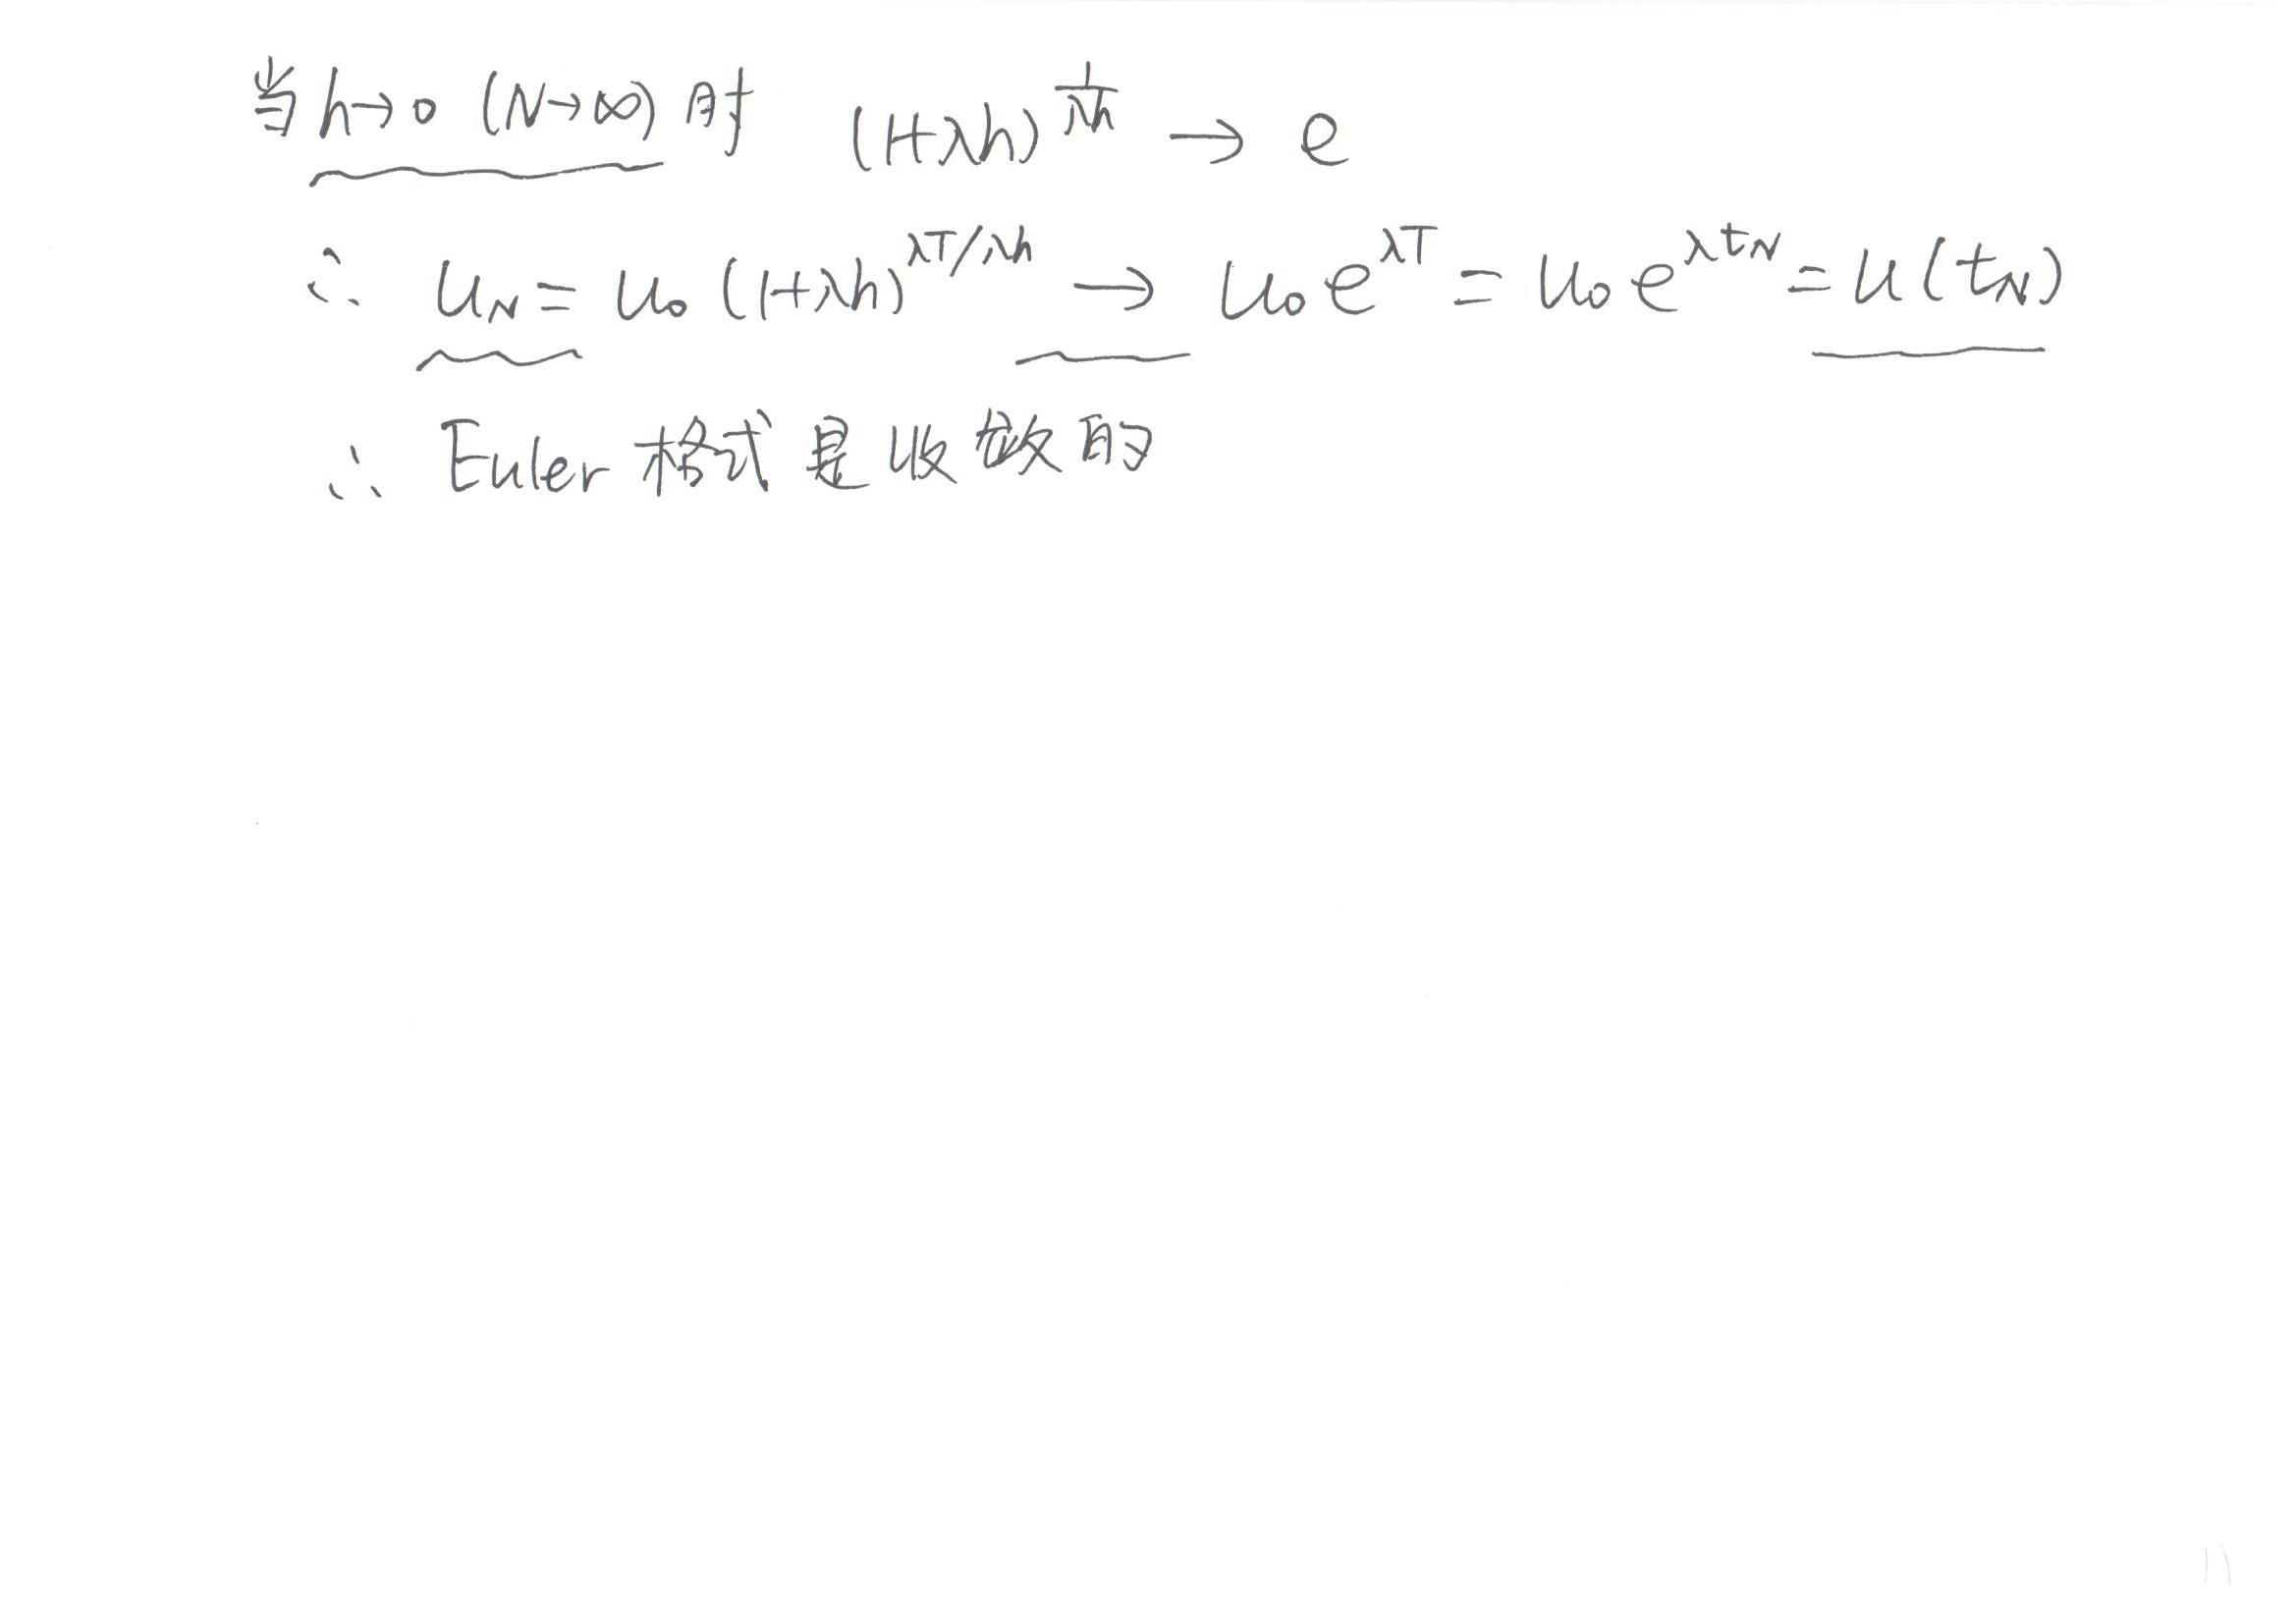 当h→0 (N→∞)时 (1+λh)^{\frac{1}{λh}} → e
∴ u_N = u_0 (1+λh)^{λT/λh} → u_0 e^{λT} = u_0 e^{λt_N} = u(t_N)
∴ Euler格式是收敛的